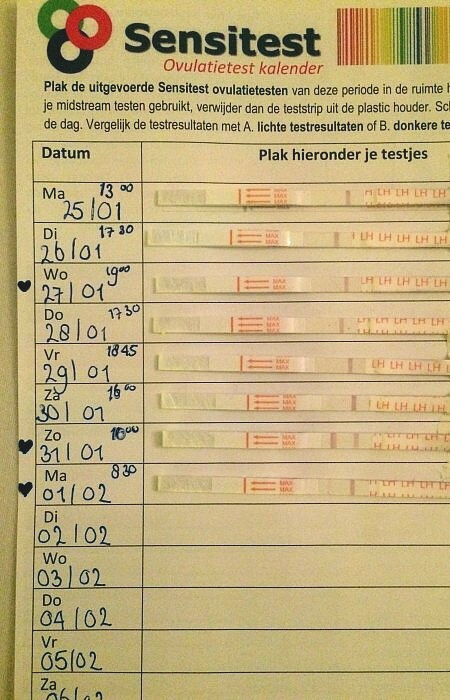 Sensitest
Ovulatietest kalender
Plak de uitgevoerde Sensitest ovulatietesten van deze periode in de ruimte h
je midstream testen gebruikt, verwijder dan de teststrip uit de plastic houder. Sc
de dag. Vergelijk de testresultaten met A. lichte testresultaten of B. donkere te
Datum Plak hieronder je testjes
Ma 13 00
25/01
MAX
MAX
H LH LH LH
Di 17 30
26/01
MAX
MAX
LH LH LH LH
Wo 19 00
27/01
MAX
MAX
LH LH LH LH
Do 17 30
28/01
MAX
MAX
LH LH LH LH
Vr 18 45
29/01
MAX
MAX
LH LH LH
Za 16 00
30/01
MAX
MAX
LH LH LH
Zo 16 00
31/01
MAX
MAX
Ma 8 30
01/02
MAX
MAX
H LH LH LH
Di
02/02
Wo
03/02
Do
04/02
Vr
05/02
Za
06/02